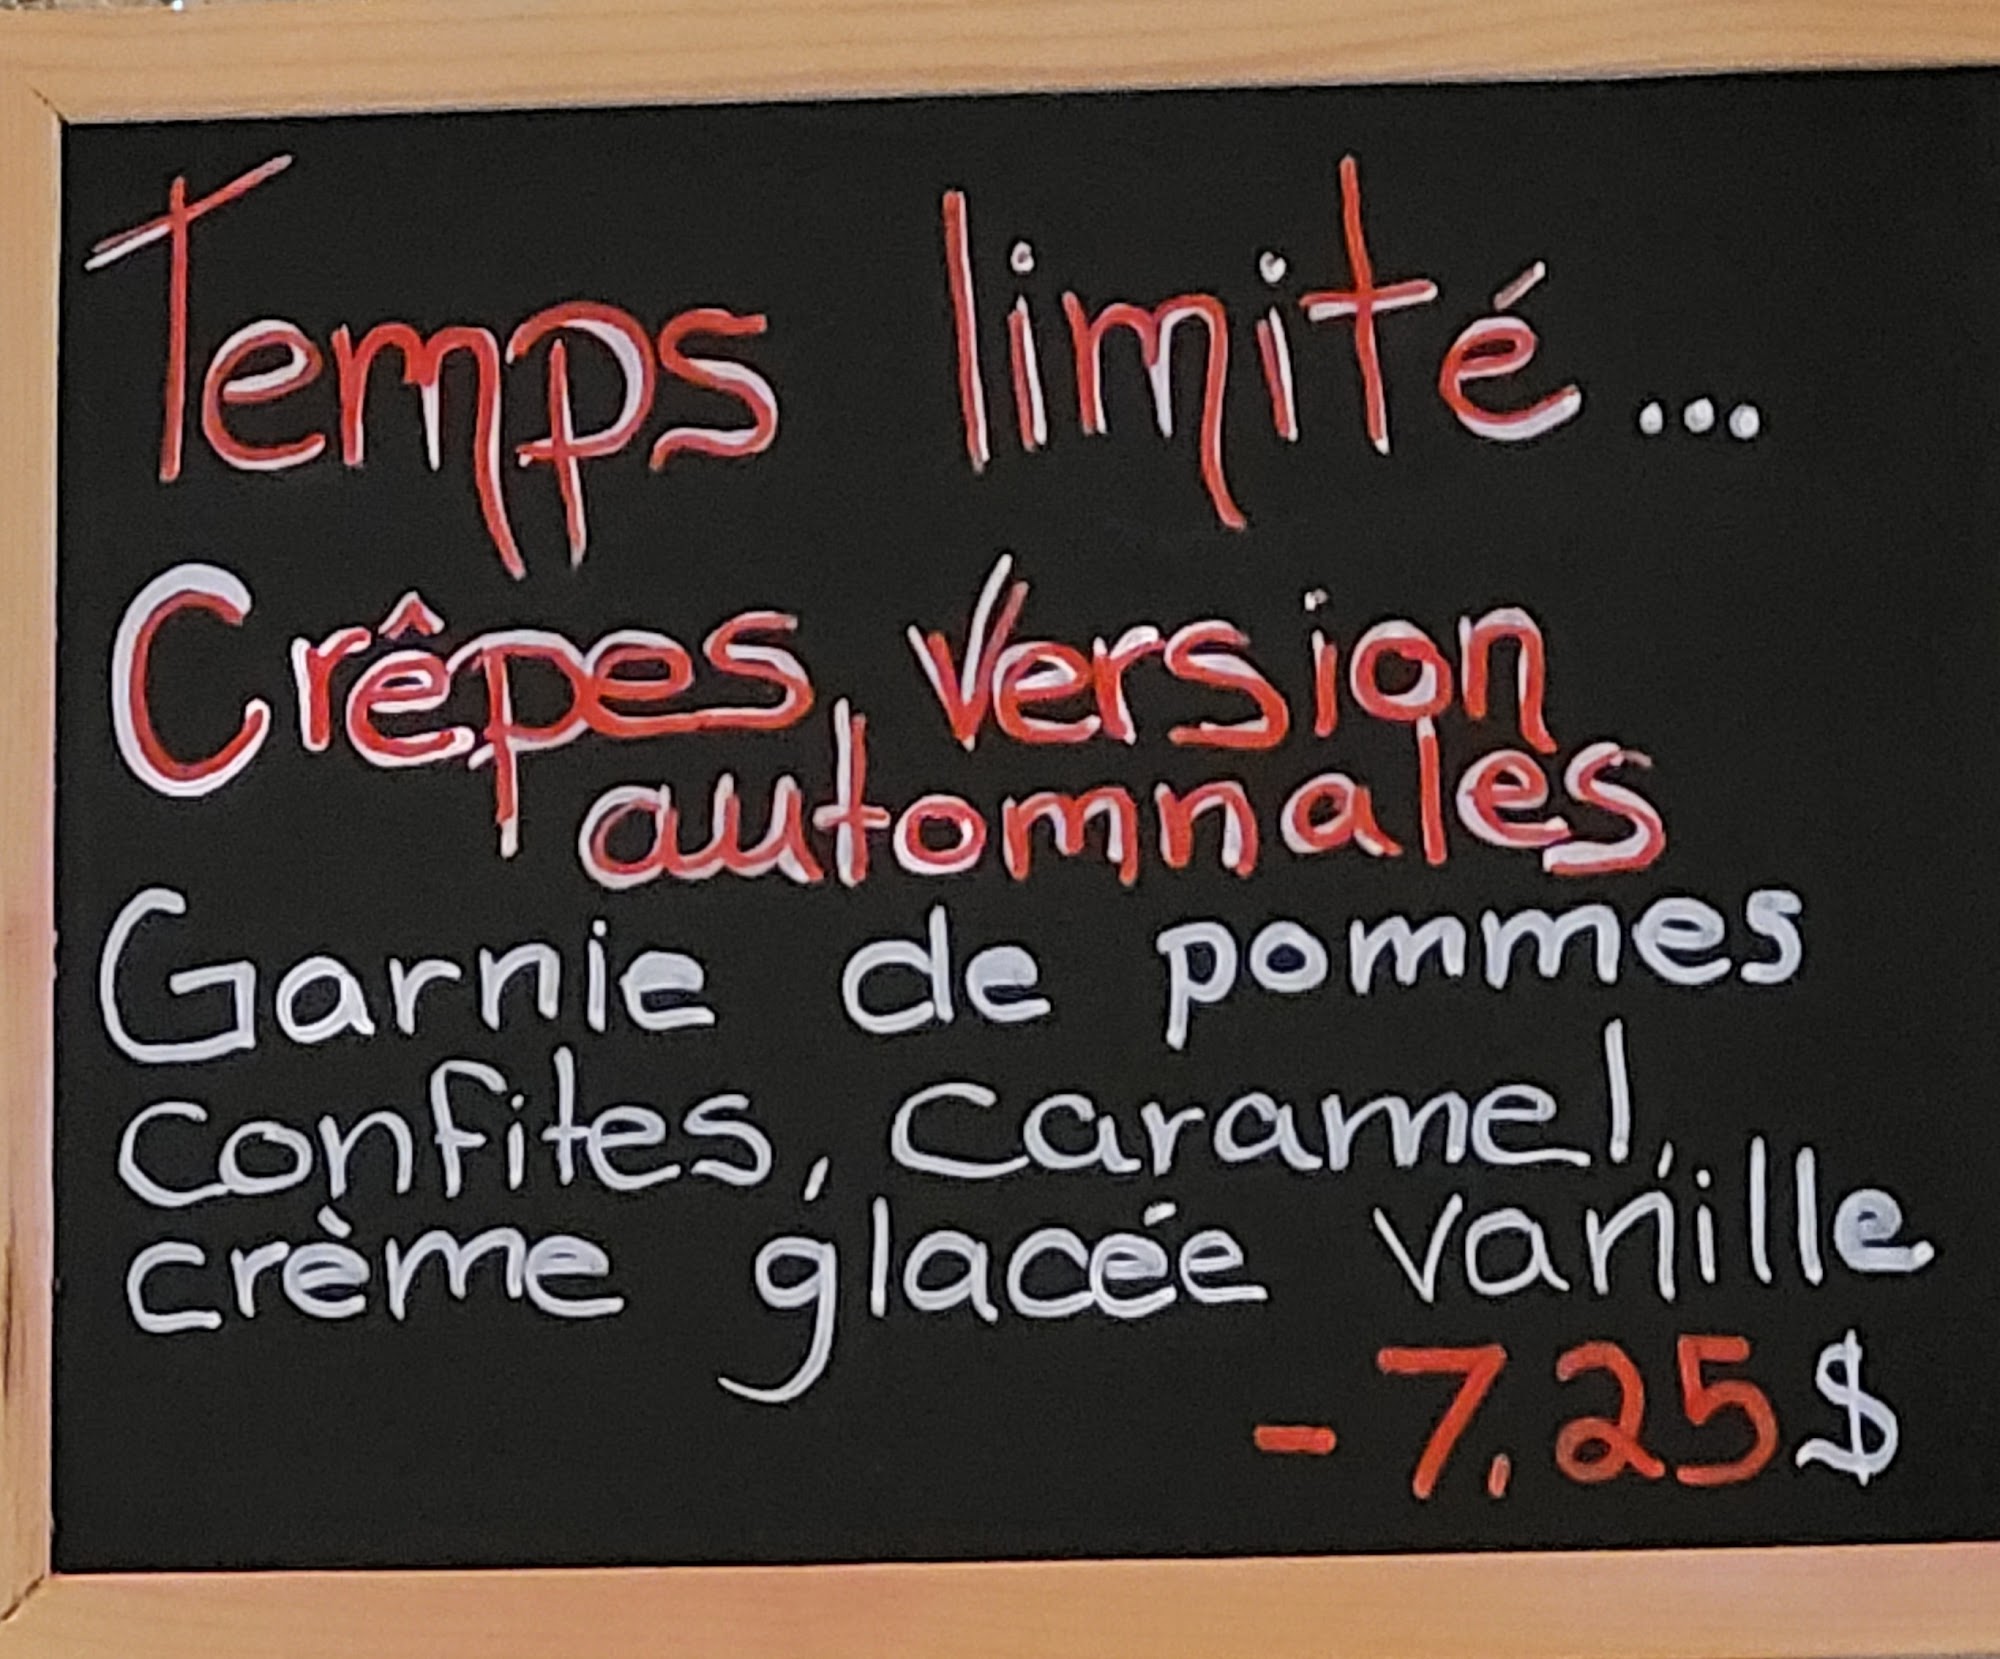 Temps limité...
Crêpes, version
automnales
Garnie de pommes
confites, caramel,
crème glacée vanille
- 7,25 $